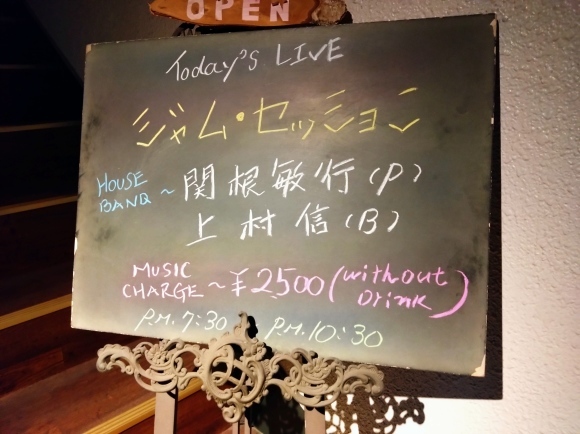 OPEN
Today's LIVE
ジャム・セッション
HOUSE BAND ~ 関根敏行(P)
上村信(B)
MUSIC CHARGE ~ ¥2500 (without DRINK)
P.M. 7:30 P.M. 10:30